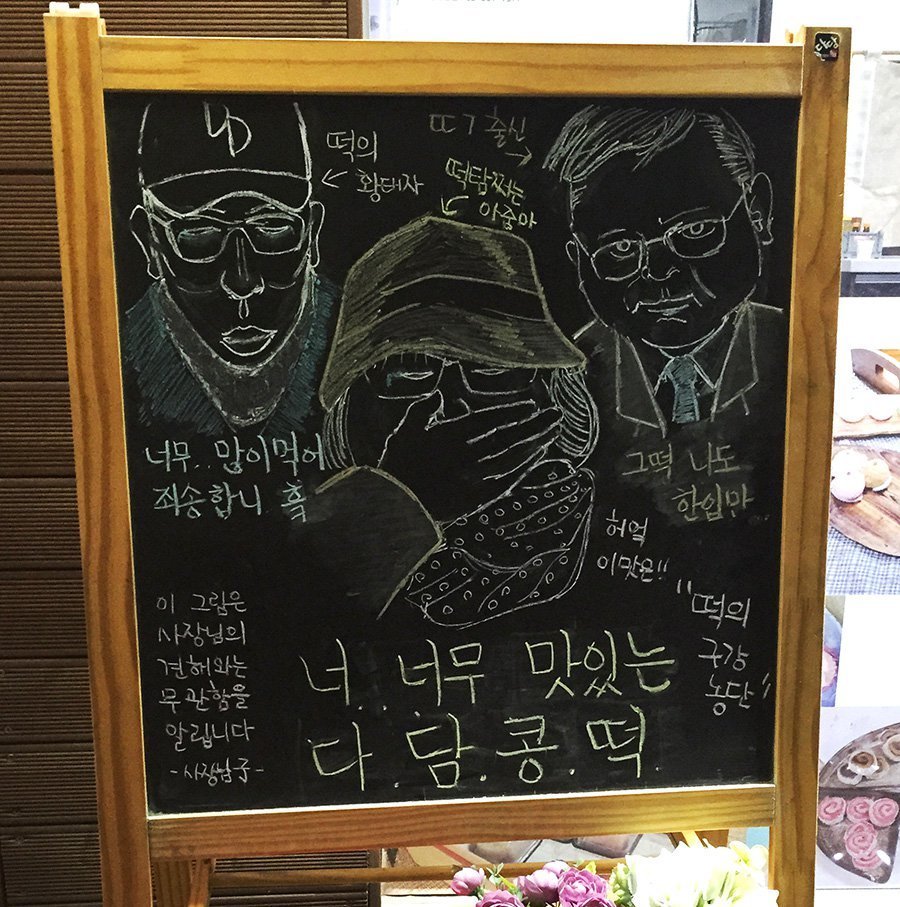 떡의
황태자
ㄸㄱ출신
떡탐찌는
아줌마
너무..많이먹어
죄송합니 흑
그떡 나도
한입만
허얽
이맛은!!
"떡의
구강
농단"
이 그림은
사장님의
견해와는
무관함을
알립니다
-사장남주-
너..너무 맛있는
다.담.콩.떡.